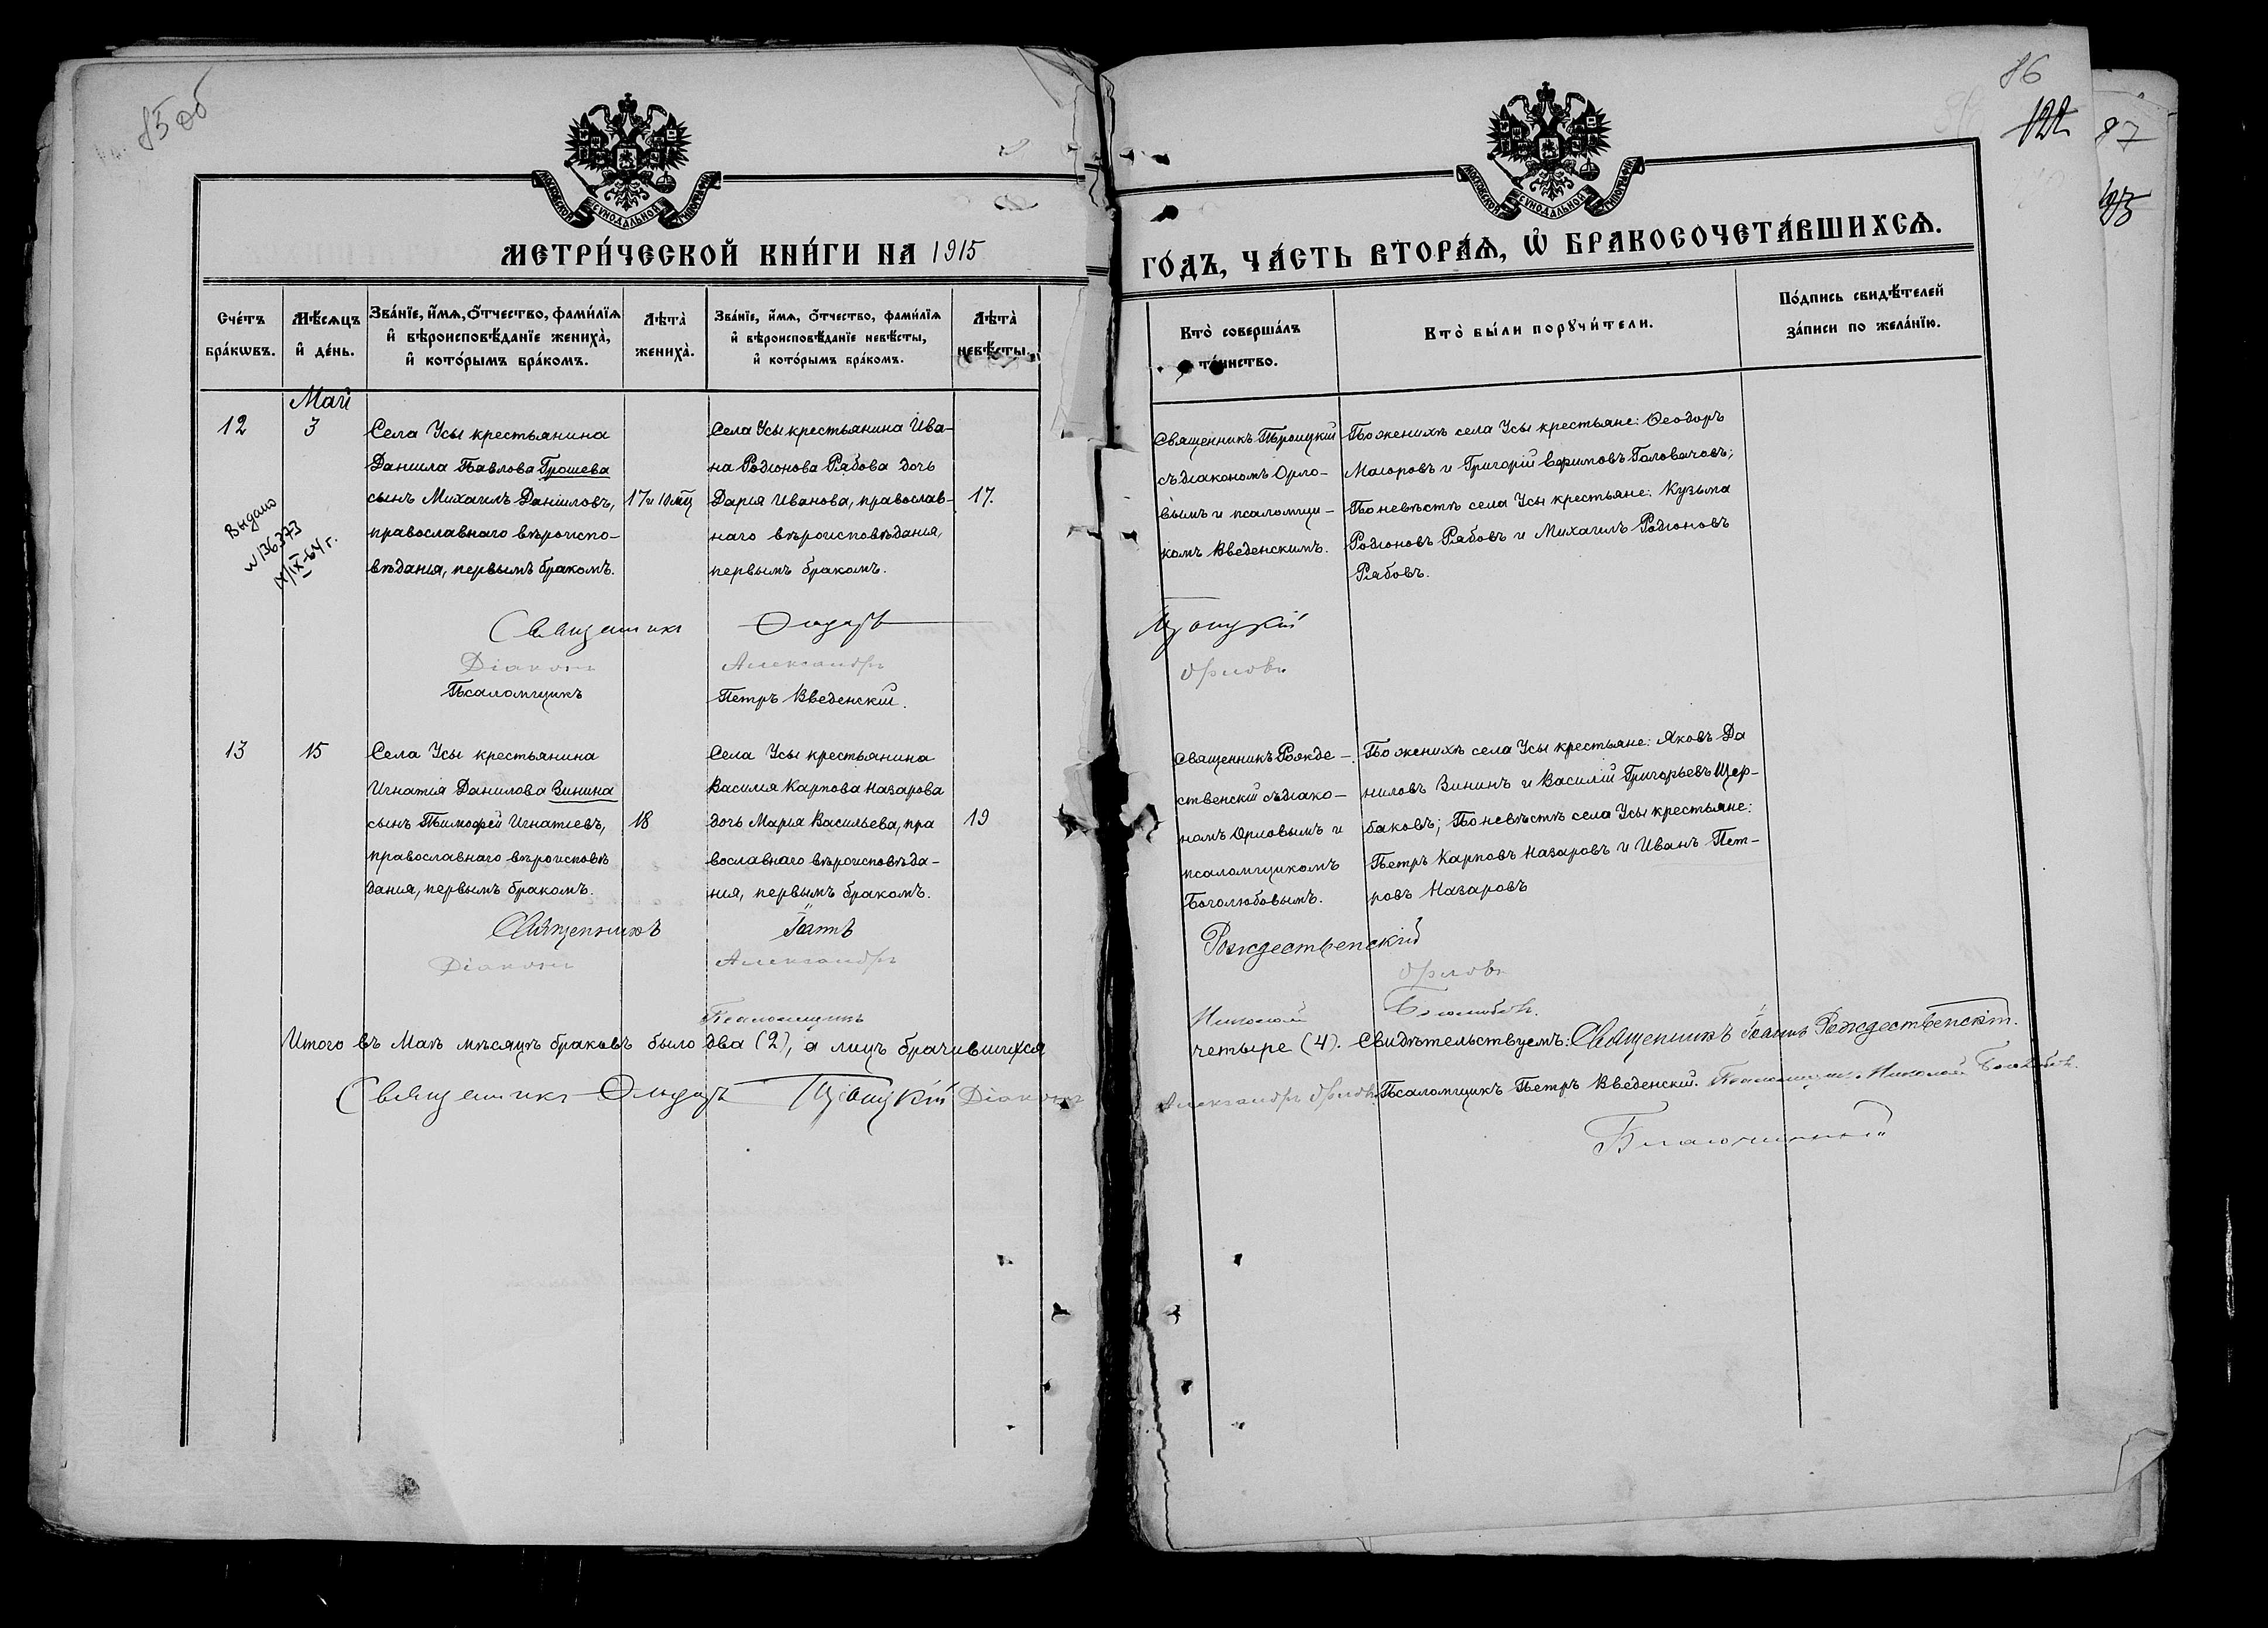 85 об
МОСКОВСКОЙ СѴНОДАЛЬНОЙ ТИПОГРАФІИ
МЕТРИ́ЧЕСКОЙ КНИ́ГИ НА 1915
Сче́тъ бра́кѡвъ.
Мѣ́сѧцъ и҆ де́нь.
Зва́нїе, и҆́мѧ, ѻ҆́тчество, фами́лїѧ и҆ вѣроисповѣ́данїе жениха̀, и҆ кото́рымъ бра́комъ.
Лѣта̀ жениха̀.
Зва́нїе, и҆́мѧ, ѻ҆́тчество, фами́лїѧ и҆ вѣроисповѣ́данїе невѣ́сты, и҆ кото́рымъ бра́комъ.
Лѣта̀ невѣ́сты.
Май
12
3
Села Усы крестьянина
Данила Павлова Грошева
сынъ Михаилъ Даниловъ,
православнаго вѣроиспо-
вѣданія, первымъ бракомъ.
17 и 10 мц
Села Усы крестьянина Ива-
на Родіонова Рябова дочь
Дарія Иванова, православ-
наго вѣроисповѣданія,
первымъ бракомъ.
17.
Выдано
N 136373
IX-64 г.
Священникъ
Діаконъ Александръ
Псаломщикъ Петръ Введенскій.
13
15
Села Усы крестьянина
Игнатія Данилова Зинина
сынъ Тимофей Игнатіевъ,
православнаго вѣроисповѣ
данія, первымъ бракомъ.
18
Села Усы крестьянина
Василія Карпова Назарова
дочь Марія Васильева, пра
вославнаго вѣроисповѣда-
нія, первымъ бракомъ.
19
Священникъ Іоаннъ
Діаконъ Александръ
Псаломщикъ
Итого въ Маѣ мѣсяцѣ браковъ было два (2), а лицъ брачившихся
Священникъ Троицкій Діаконъ
86
122
87
МОСКОВСКОЙ СѴНОДАЛЬНОЙ ТИПОГРАФІИ
ГО́ДЪ, ЧА́СТЬ ВТОРА́Ѧ, Ѽ БРАКОСОЧЕТА́ВШИХСѦ.
Кто̀ соверша́лъ та́инство.
Кто̀ бы́ли порꙋчи́тели.
По́дпись свидѣ́телей за́писи по жела́нїю.
Священникъ Троицкій
съ діакономъ Орло-
вымъ и псаломщи-
комъ Введенскимъ.
По женихѣ села Усы крестьяне: Ѳеодоръ
Маіоровъ и Григорій Ефимовъ Головачовъ;
По невѣстѣ села Усы крестьяне: Кузьма
Родіоновъ Рябовъ и Михаилъ Родіоновъ
Рябовъ.
Троицкій
Орловъ
Священникъ Рожде-
ственскій съ діако-
номъ Орловымъ и
псаломщикомъ
Боголюбовымъ.
По женихѣ села Усы крестьяне: Яковъ Да
ниловъ Зининъ и Василій Григорьевъ Щер-
баковъ; По невѣстѣ села Усы крестьяне:
Петръ Карповъ Назаровъ и Иванъ Пет-
ровъ Назаровъ
Рождественскій
Орловъ
Николай Боголюбовъ.
четыре (4). Свидѣтельствуемъ: Священникъ Іоаннъ Рождественскій.
Александръ Орловъ. Псаломщикъ Петръ Введенскій. Псаломщикъ Николай Боголюбовъ.
Благочинный